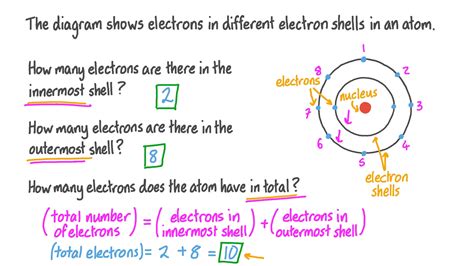 The diagram shows electrons in different electron shells in an atom.
How many electrons are there in the
innermost shell? 2
How many electrons are there in the
outermost shell? 8
How many electrons does the atom have in total?
(total number of electrons) = (electrons in innermost shell) + (electrons in outermost shell)
(total electrons) = 2 + 8 = 10
1
2
3
4
5
6
7
8
electrons
nucleus
electron
shells